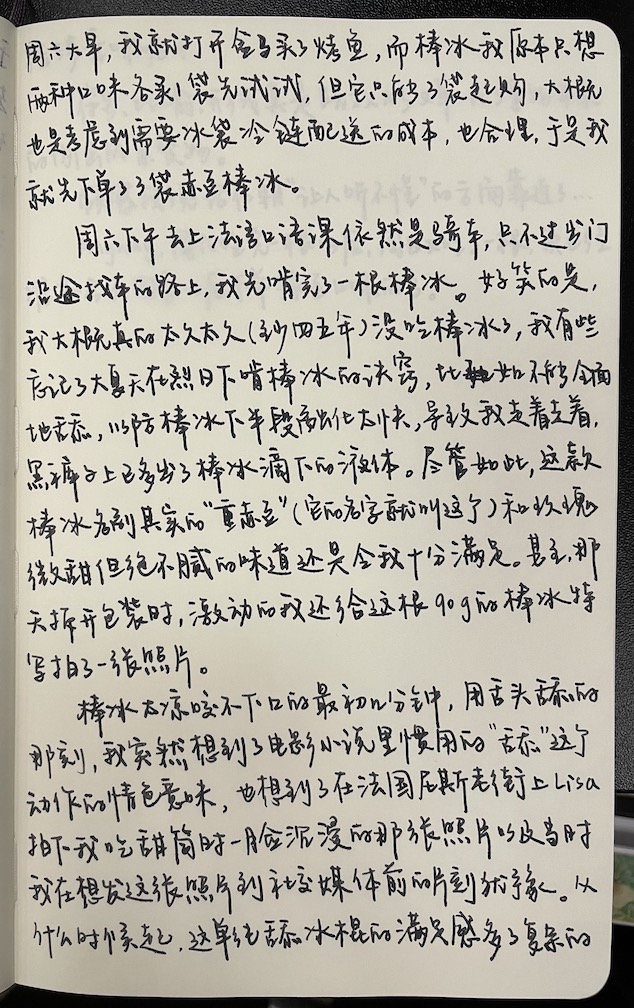 周六大早，我就打开盒马买了烤鱼，而棒冰我原本只想
两种口味各买1袋先试试，但它只能3袋起购，大概
也是考虑到需要冰袋冷链配送的成本，也合理，于是我
就先下单了3袋赤豆棒冰。
周六下午去上法语口语课依然是骑车，只不过出门
沿途找车的路上，我先啃完了一根棒冰。好笑的是，
我大概真的太久太久（至少四五年）没吃棒冰了，我有些
忘记了大夏天在烈日下啃棒冰的诀窍，比如不能全面
地舔，以防棒冰下半段融化太快，导致我走着走着，
黑裤子上已多出了棒冰滴下的液体。尽管如此，这款
棒冰名副其实的“重赤豆”（它的名字就叫这个）和玫瑰
微甜但绝不腻的味道还是令我十分满足。甚至，那
天拆开包装时，激动的我还给这根90g的棒冰特
写拍了一张照片。
棒冰太凉咬不下口的最初几分钟，用舌头舔的
那刻，我突然想到了电影小说里惯用的“舔”这个
动作的情色意味，也想到了在法国尼斯老街上Lisa
拍下我吃甜筒时一脸沉浸的那张照片以及当时
我在想发这张照片到社交媒体前的片刻犹豫。从
什么时候起，这单纯舔冰棍的满足感多了复杂的